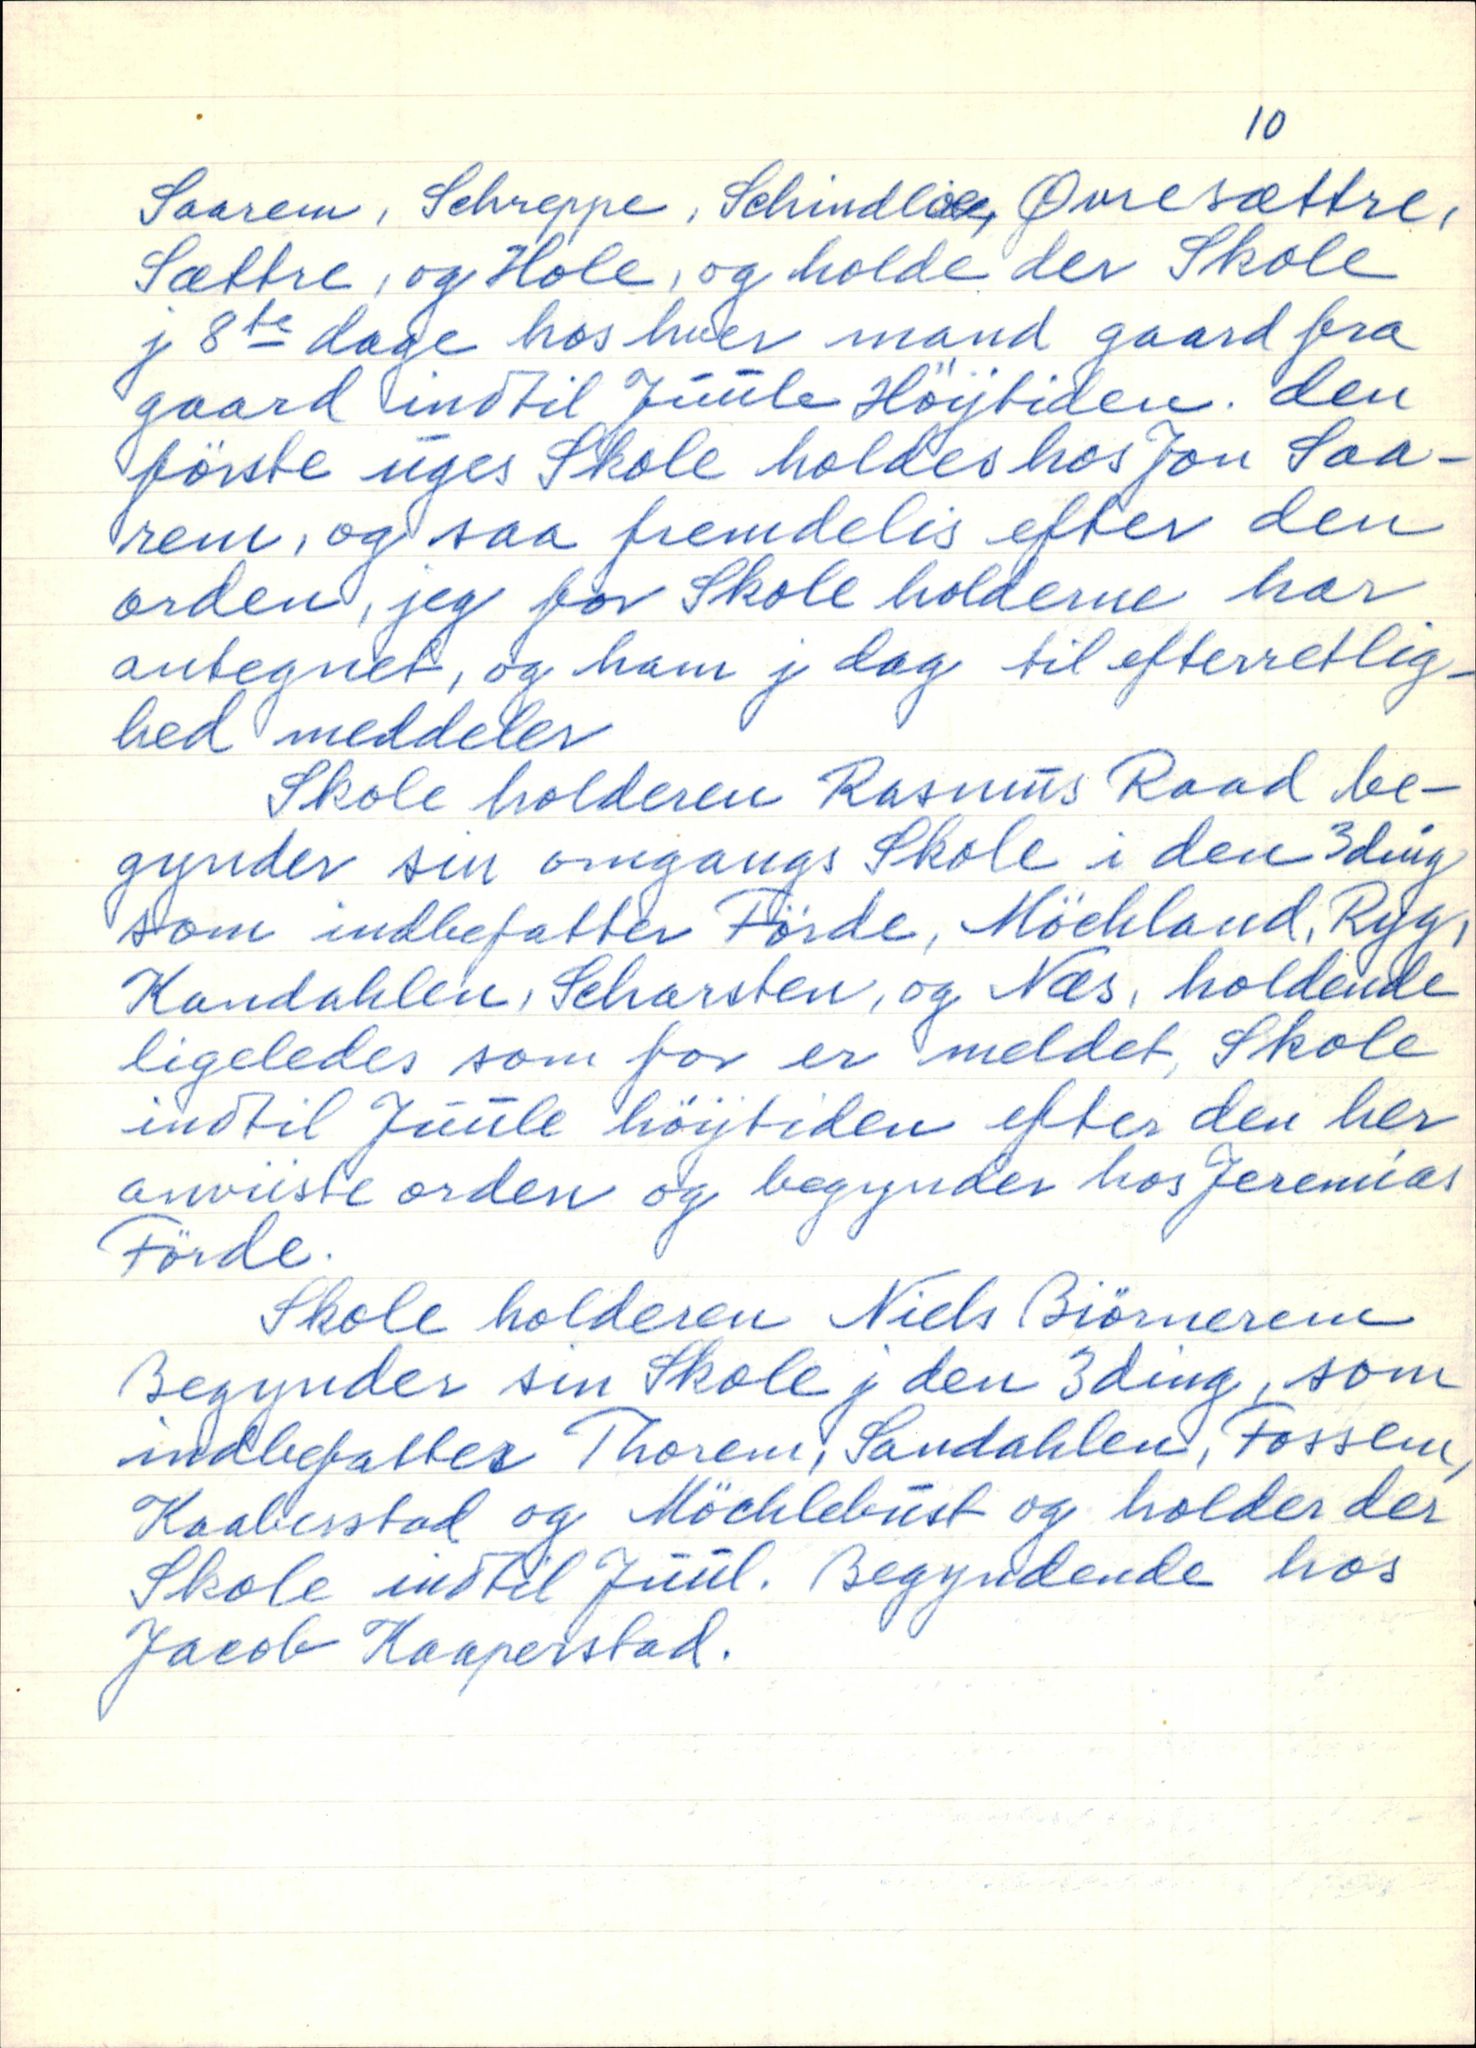 10
Saarem, Schreppe, Schindlie, Øvresættre,
Sættre, og Hole, og holde der Skole
j 8te dage hos hver mand gaard fra
gaard indtil Juule Höÿtiden. den
förste uges Skole holdes hos Jon Saa-
rem, og saa fremdelis efter den
orden, jeg for Skole holderne har
antegnet, og ham j dag til efterretlig-
hed meddeler
Skole holderen Rasmus Raad be-
gynder sin omgangs Skole i den 3ding
som indbefatter Förde, Möchland, Ryg,
Kandahlen, Scharsten, og Næs, holdende
ligeledes som for er meldet, Skole
indtil Juule höÿtiden efter den her
anviiste orden og begynder hos Jeremias
Förde.
Skole holderen Niels Biörnerem
Begynder sin Skole j den 3ding, som
indbefatter Thorem, Sandahlen, Fossem,
Kaaberstad og Möchlebust og holder der
Skole indtil Juul. Begyndende hos
Jacob Kaaperstad.